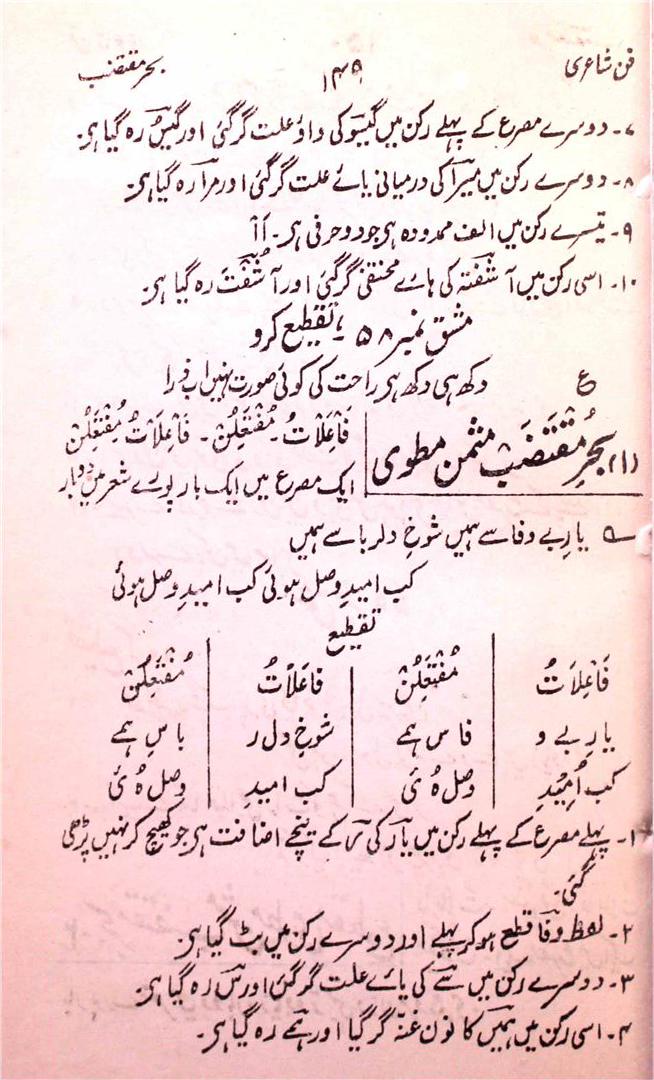 فن شاعری ۱۴۹ بحر مقتضب
۷۔ دوسرے مصرع کے پہلے رکن میں گیسو کی داؤ علت گر گئی اور گیسُ رہ گیا ہی۔
۸۔ دوسرے رکن میں میرا کی درمیانی یائے علت گر گئی اور مرا رہ گیا ہی۔
۹۔ تیسرے رکن میں الف ممدودہ ہی جو دو حرفی ہی۔ اَآ
۱۰۔ اسی رکن میں آشفتہ کی ہائے مختفی گر گئی اور آشُفْتَ رہ گیا ہی۔
مشق نمبر ۵۸ ۔ تقطیع کرو
ع دکھ ہی دکھ ہی راحت کی کوئی صورت نہیں اب ذرا
(۱) بحرِ مُقْتَضَب مثمن مطوی
فَاْعِلَاْتُ۔ مُفْتَعِلُنْ۔ فَاْعِلَاتُ مُفْتَعِلُنْ
ایک مصرع میں ایک بار پورے شعر میں دو بار
؎ یارِ بے وفا سے ہمیں شوخِ دلربا سے ہمیں
کب امیدِ وصل ہوئی کب امیدِ وصل ہوئی
تقطیع
فَاْعِلَاتُ مُفْتَعِلُنْ فَاعِلَاْتُ مُفْتَعِلُنْ
یارِ بے و فا سِ ہمے شوخِ دل ر با سِ ہمے
کب اُمِیْدِ وصل ہُ ئی کب امیدِ وصل ہُ ئی
۱۔ پہلے مصرع کے پہلے رکن میں یار کی ر کے نیچے اضافت ہی جو کھینچ کر نہیں پڑھی
گئی۔
۲۔ لفظ وفا قطع ہو کر پہلے اور دوسرے رکن میں بٹ گیا ہی۔
۳۔ دوسرے رکن میں سے کی یائے علت گر گئی اور س رہ گیا ہی۔
۴۔ اسی رکن میں ہمیں کا نون غنّہ گر گیا اور ہمے رہ گیا ہی۔